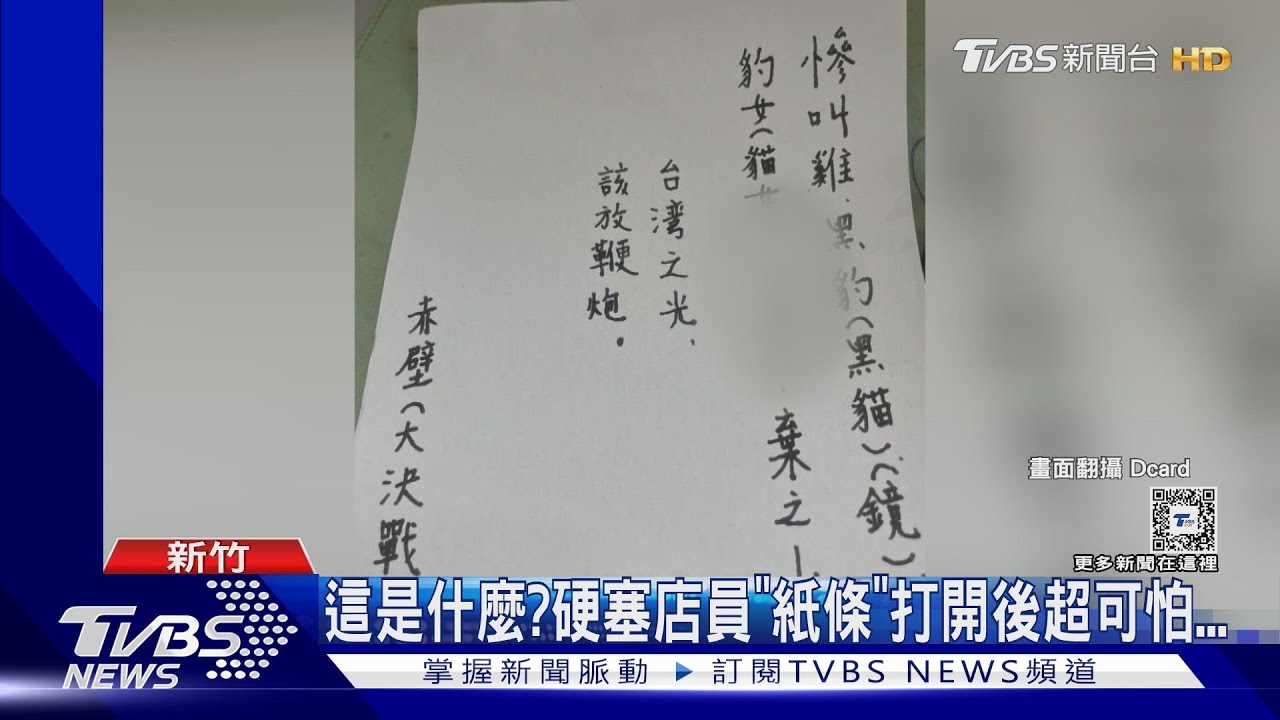 TVBS新聞台 HD
慘叫雞、黑豹(黑貓)(鏡)
豹女(貓女
棄之
台湾之光、
該放鞭炮。
赤壁(大決戰
畫面翻攝 Dcard
更多新聞在這裡
新竹
這是什麼?硬塞店員"紙條"打開後超可怕...
TVBS NEWS
掌握新聞脈動 ▶ 訂閱TVBS NEWS頻道